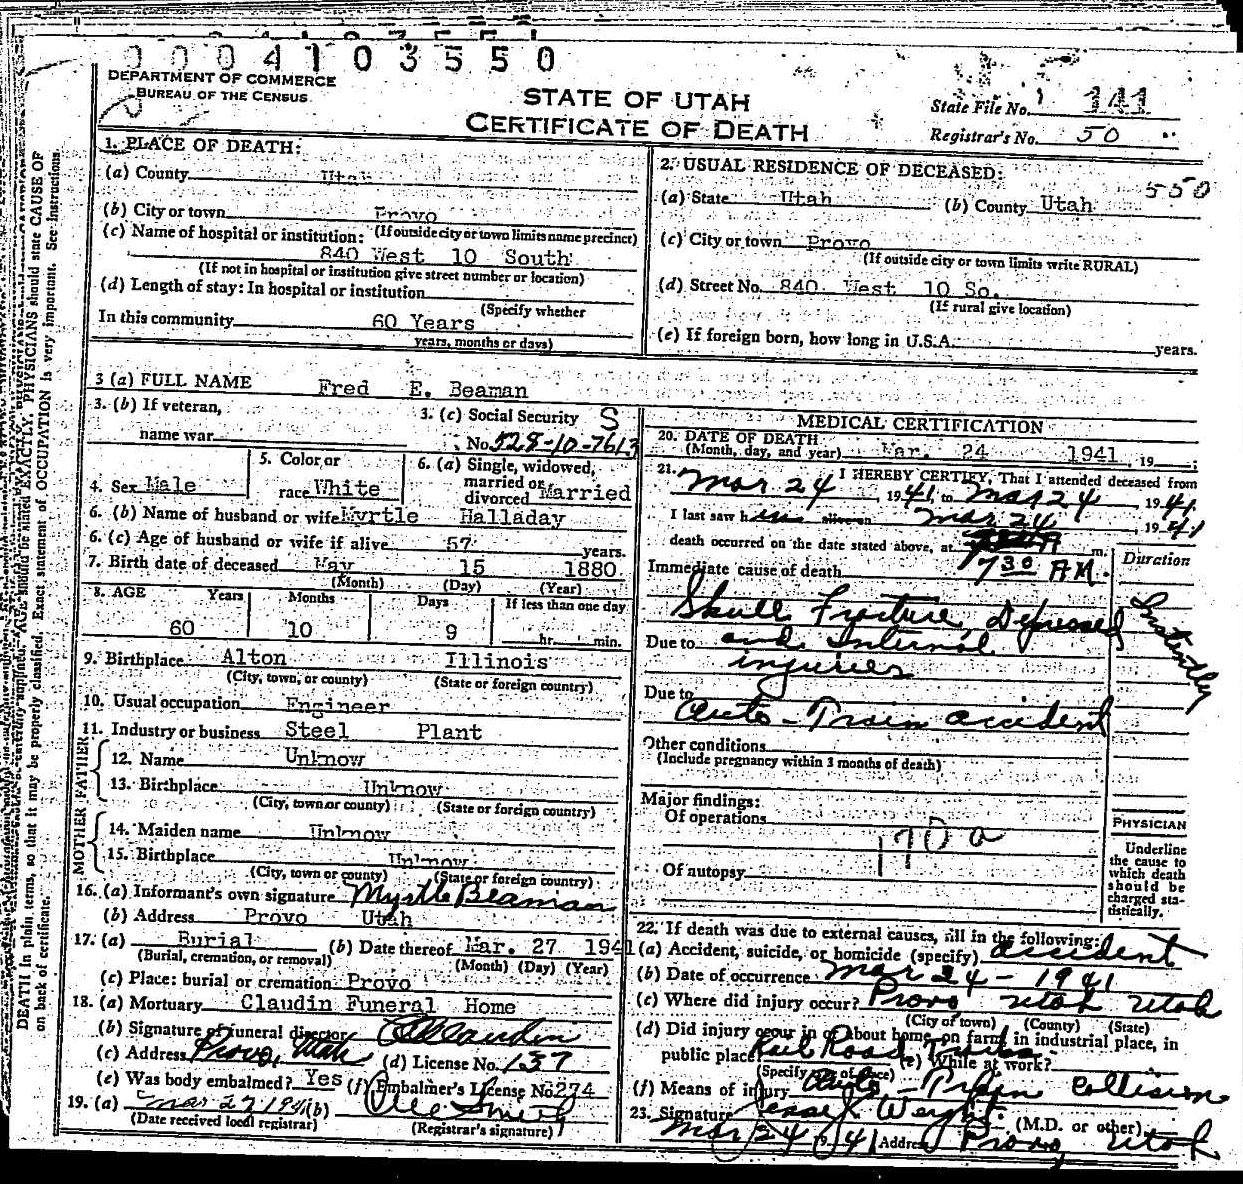 0004103550
DEPARTMENT OF COMMERCE
BUREAU OF THE CENSUS
STATE OF UTAH
CERTIFICATE OF DEATH
State File No. 141
Registrar's No. 50
1. PLACE OF DEATH:
(a) County Utah
(b) City or town Provo
(If outside city or town limits name precinct)
(c) Name of hospital or institution:
840 West 10 South
(If not in hospital or institution give street number or location)
(d) Length of stay: In hospital or institution
(Specify whether
In this community 60 Years
years, months or days)
2. USUAL RESIDENCE OF DECEASED:
550
(a) State Utah (b) County Utah
(c) City or town Provo
(If outside city or town limits write RURAL)
(d) Street No. 840 West 10 So.
(If rural give location)
(e) If foreign born, how long in U.S.A. years.
3 (a) FULL NAME Fred E. Beaman
3. (b) If veteran,
name war
3. (c) Social Security S
No. 528-10-7613
4. Sex Male
5. Color or
race White
6. (a) Single, widowed,
married or
divorced Married
6. (b) Name of husband or wife Myrtle Halladay
6. (c) Age of husband or wife if alive 57 years.
7. Birth date of deceased May 15 1880
(Month) (Day) (Year)
8. AGE Years Months Days If less than one day
60 10 9 hr. min.
9. Birthplace Alton Illinois
(City, town, or county) (State or foreign country)
10. Usual occupation Engineer
11. Industry or business Steel Plant
FATHER
12. Name Unknow
13. Birthplace Unknow
(City, town or county) (State or foreign country)
MOTHER
14. Maiden name Unknow
15. Birthplace Unknow
(City, town or county) (State or foreign country)
16. (a) Informant's own signature Myrtle Beaman
(b) Address Provo Utah
17. (a) Burial (b) Date thereof Mar. 27 1941
(Burial, cremation, or removal) (Month) (Day) (Year)
(c) Place: burial or cremation Provo
18. (a) Mortuary Claudin Funeral Home
(b) Signature of funeral director Claudin
(c) Address Provo, Utah (d) License No. 137
(e) Was body embalmed? Yes (f) Embalmer's License No. 274
19. (a) Mar 27 1941 (b) Smith
(Date received local registrar) (Registrar's signature)
MEDICAL CERTIFICATION
20. DATE OF DEATH
(Month, day, and year) Mar. 24 1941, 19
21. I HEREBY CERTIFY, That I attended deceased from
Mar 24, 1941, to Mar 24, 1941.
I last saw him alive on Mar 24, 1941
death occurred on the date stated above, at m.
7 30 AM.
Duration
Immediate cause of death
Skull Fracture, Depressed
Instantly
Due to and Internal
injuries
Due to
Auto-Train accident
Other conditions
(Include pregnancy within 3 months of death)
Major findings:
Of operations
170 a
Of autopsy
PHYSICIAN
Underline
the cause to
which death
should be
charged sta-
tistically.
22. If death was due to external causes, fill in the following:
(a) Accident, suicide, or homicide (specify) accident
(b) Date of occurrence Mar 24 - 1941
(c) Where did injury occur? Provo Utah Utah
(City or town) (County) (State)
(d) Did injury occur in or about home, on farm, in industrial place, in
public place? Rail Road
(Specify type of place) (e) While at work?
(f) Means of injury Auto - Train Collision
23. Signature Weight (M.D. or other)
Mar 24 1941 Address Provo, Utah
DEATH in plain terms, so that it may be properly classified. Exact statement of OCCUPATION is very important. See instructions
on back of certificate.
AGE should be stated EXACTLY. PHYSICIANS should state CAUSE OF